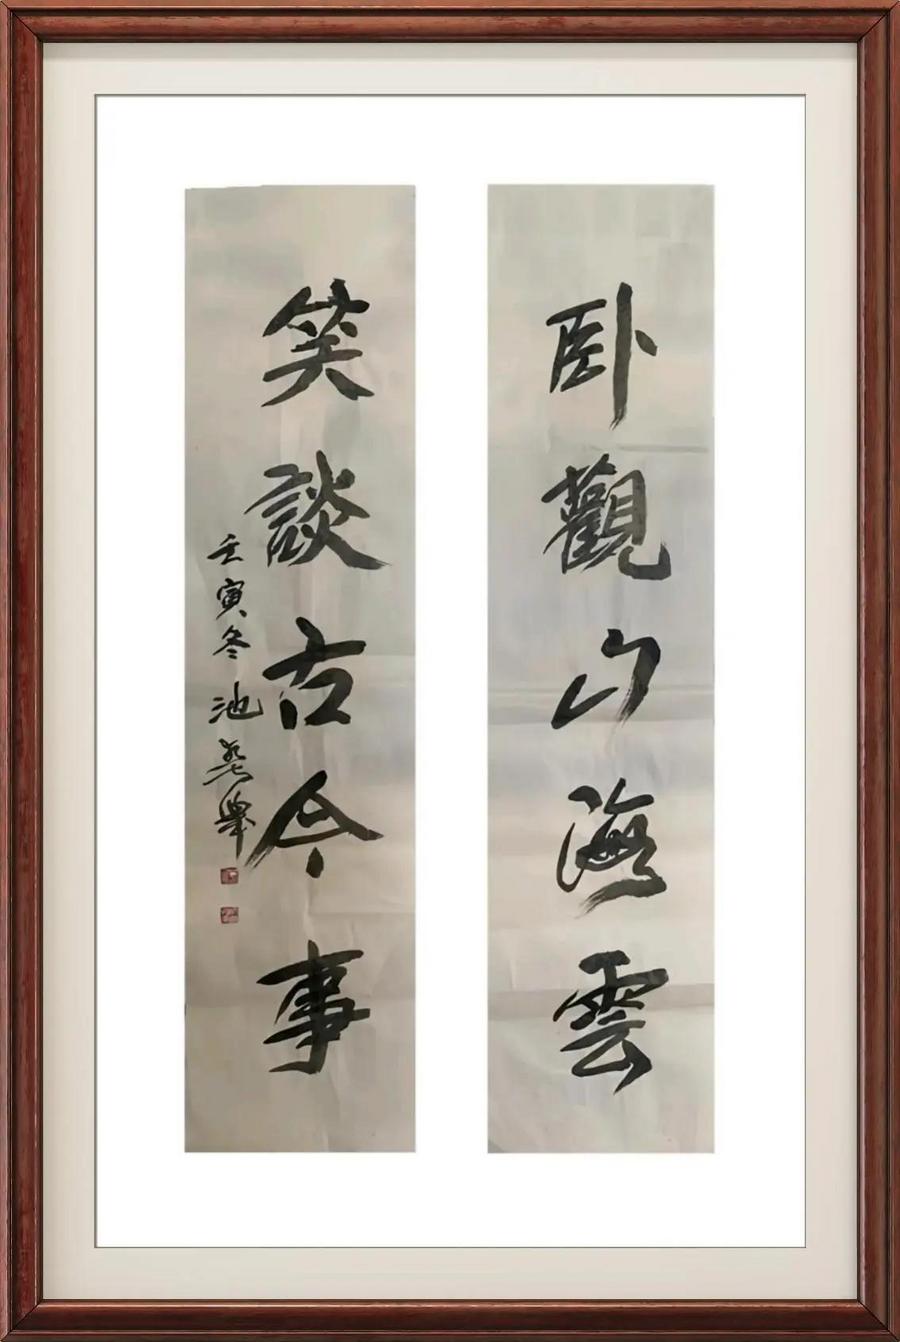 卧觀山海雲
笑談古今事
壬寅冬 池堯舉